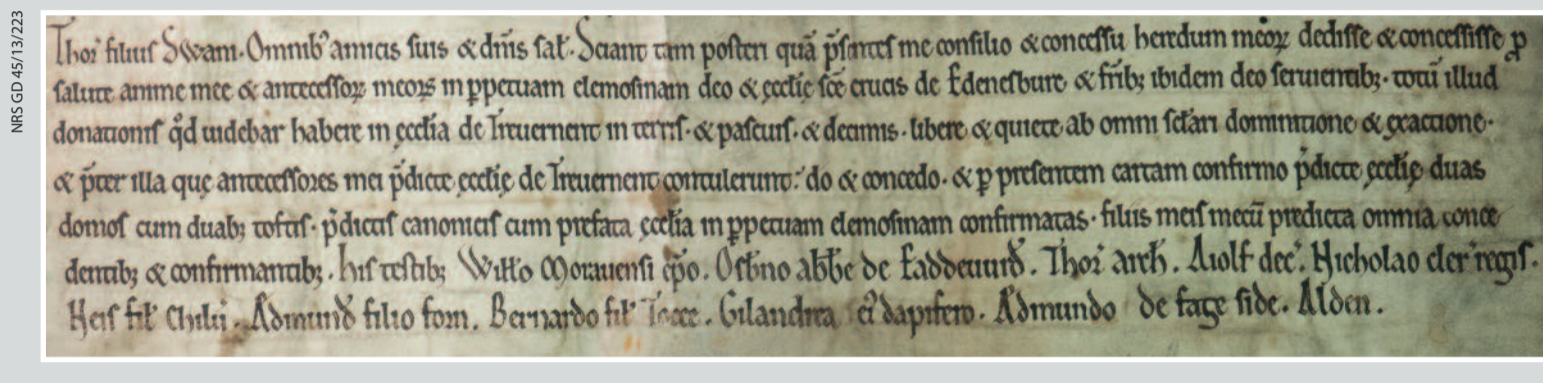 NRS GD 45/13/223
Thor' filius Swani. Omnib' amicis suis & dn̄is sal'. Sciant tam posteri quā p̄sentes me consilio & concessu heredum meoꝝ dedisse & concessisse ꝓ
salute anime mee & antecessoꝝ meoꝝ in ꝑpetuam elemosinam deo & ęcclię scē crucis de Edenesburc & fr̄ibꝫ ibidem deo seruientibꝫ. totū illud
donationis qd̄ uidebar habere in ęcclīa de Treuernent in terris. & pascuis. & decimis. libere & quiete ab omni sclārı dominatione & exactione.
& p̄ter illa quę antecessores mei p̄dicte ęcclię de Treuernent contulerunt: do & concedo. & ꝑ presentem cartam confirmo p̄dicte ęcclię duas
domos cum duabꝫ toftis. p̄dictis canonicis cum prefata ęcclīa in ꝑpetuam elemosinam confirmatas. filiis meis mecū predicta omnia conce
dentibꝫ & confirmantibꝫ. his testibꝫ Witt̄o Morauensi ep̄o. Osb̄no abb̄e de Iaddewrđ. Thor' arch̄. Aiolf dec'. Nicholao cler' regis.
Neis fil' Chilin. Ædmunđ filio forn. Bernardo fil' Tocce. Gilandrea ei' dapifero. Ædmundo de fage side. Alden.